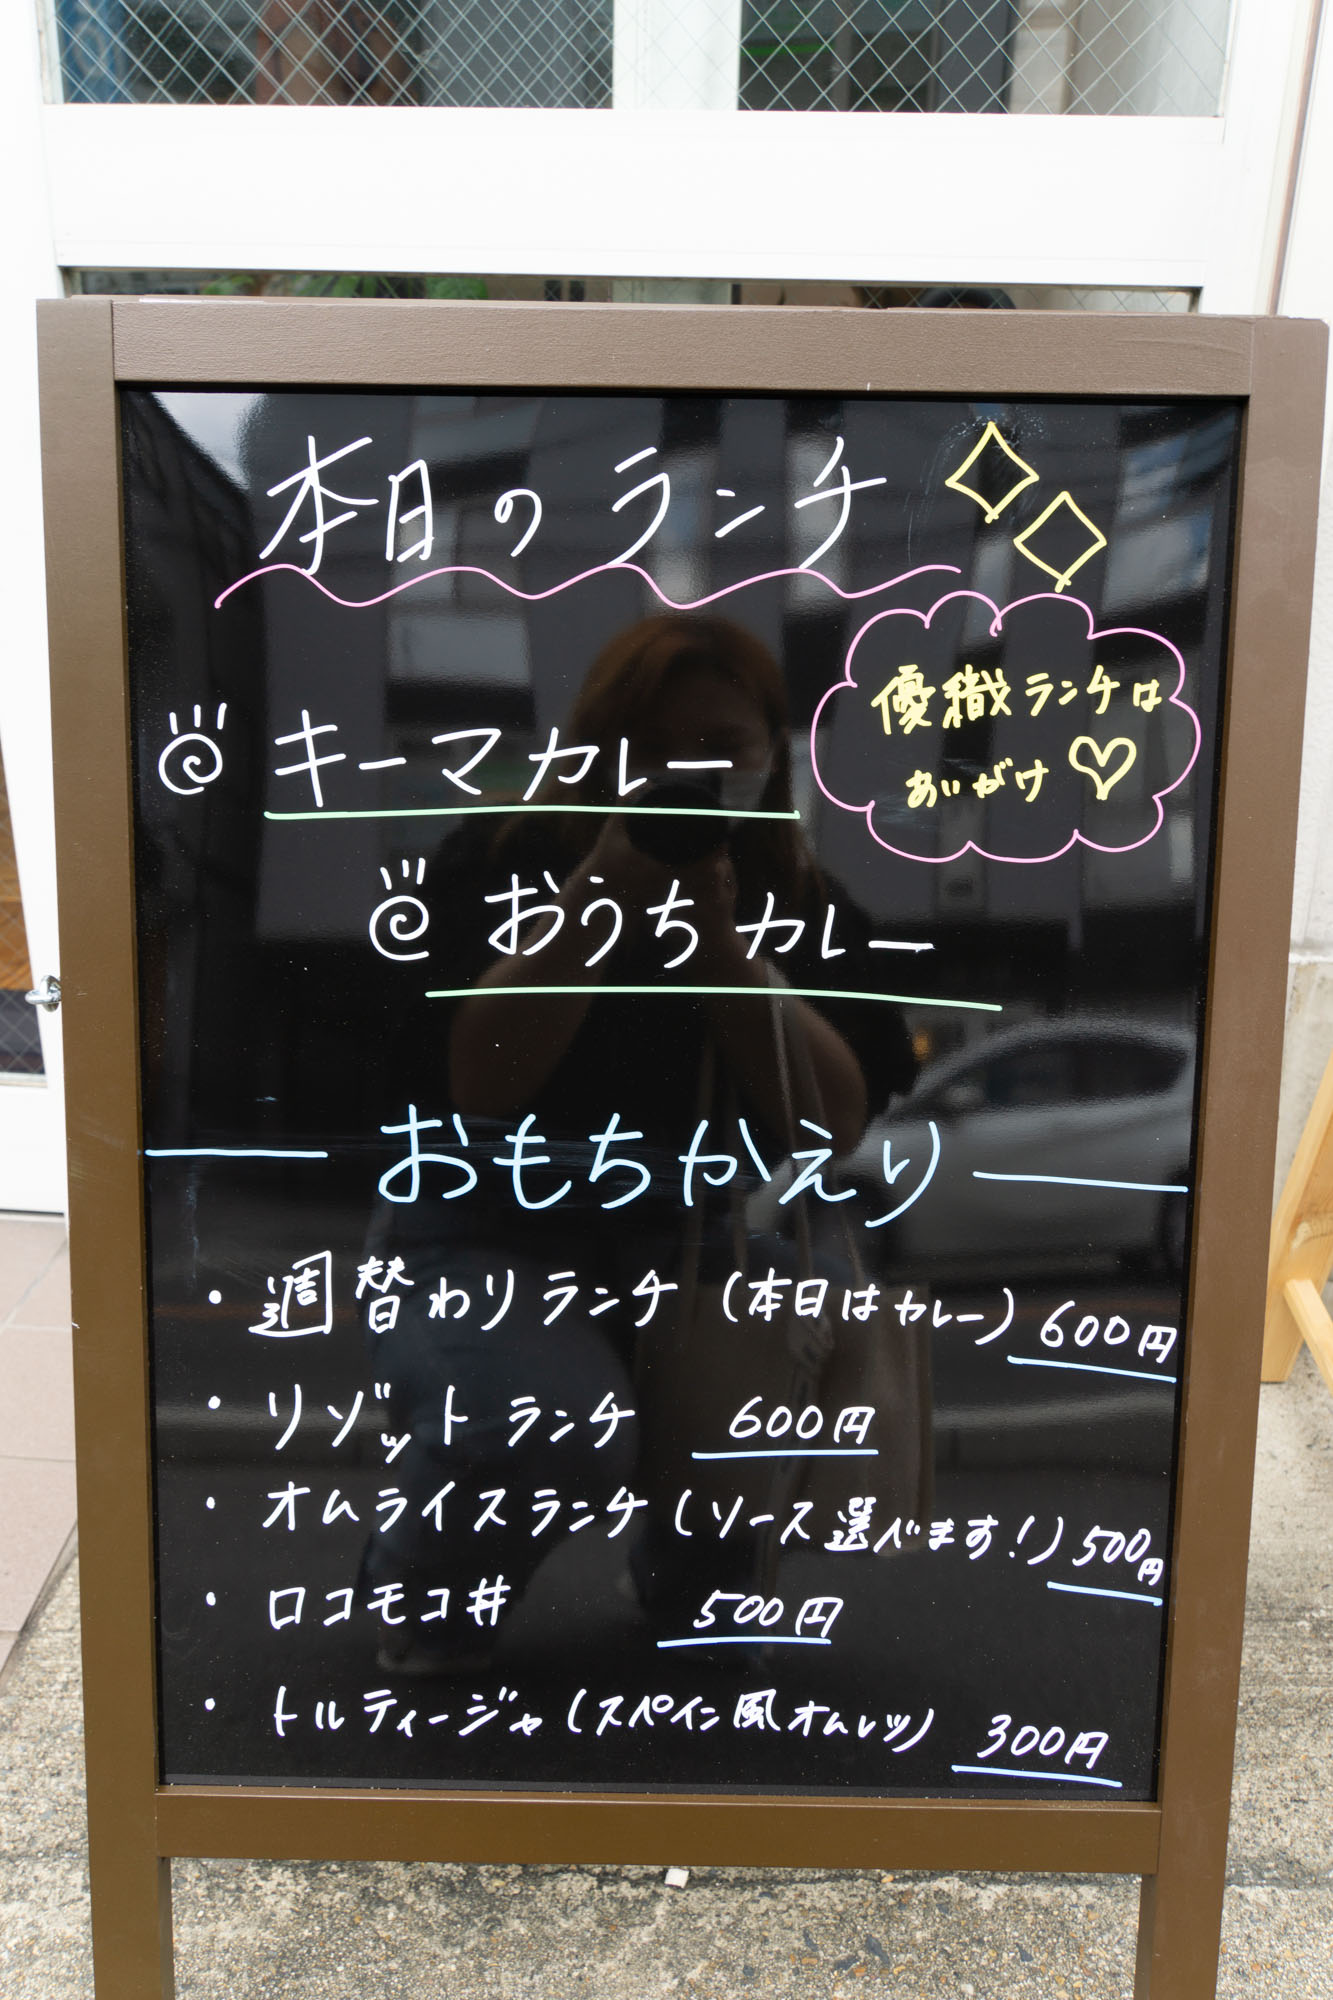 本日のランチ
優織ランチは
あいがけ♡
キーマカレー
おうちカレー
おもちかえり
・週替わりランチ (本日はカレー) 600円
・リゾットランチ 600円
・オムライスランチ (ソース選べます!) 500円
・ロコモコ丼 500円
・トルティージャ (スペイン風オムレツ) 300円